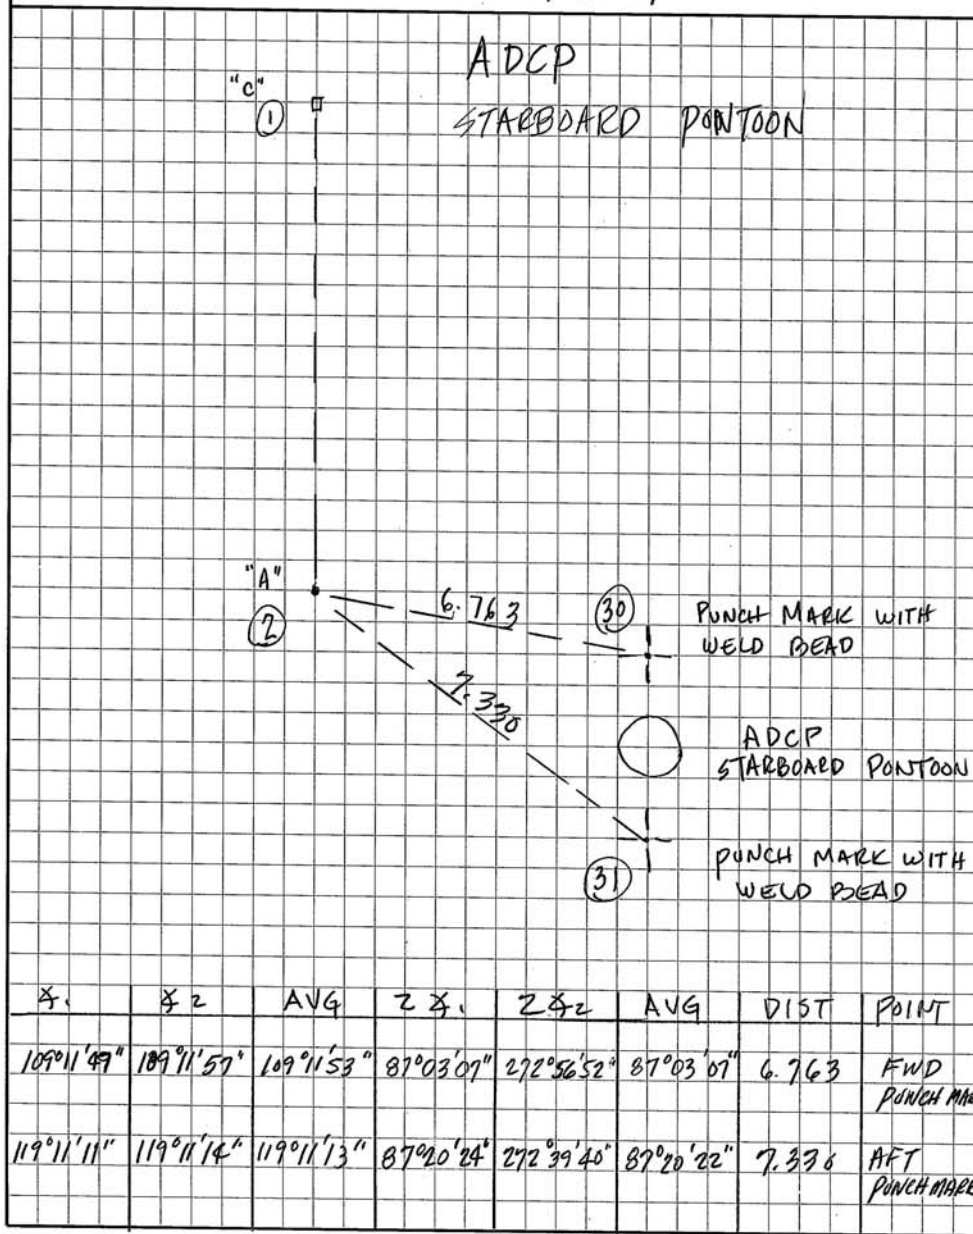 ADCP
"C"
① STARBOARD PONTOON
"A"
②
6.763
㉚
PUNCH MARK WITH
WELD BEAD
7.330
ADCP
STARBOARD PONTOON
㉛
PUNCH MARK WITH
WELD BEAD
∡1 ∡2 AVG Z∡1 Z∡2 AVG DIST POINT
109°11'49" 109°11'57" 109°11'53" 87°03'07" 272°56'52" 87°03'07" 6.763 FWD
PUNCH MA
119°11'11" 119°11'14" 119°11'13" 87°20'24" 272°39'40" 87°20'22" AFT
PUNCH MARK